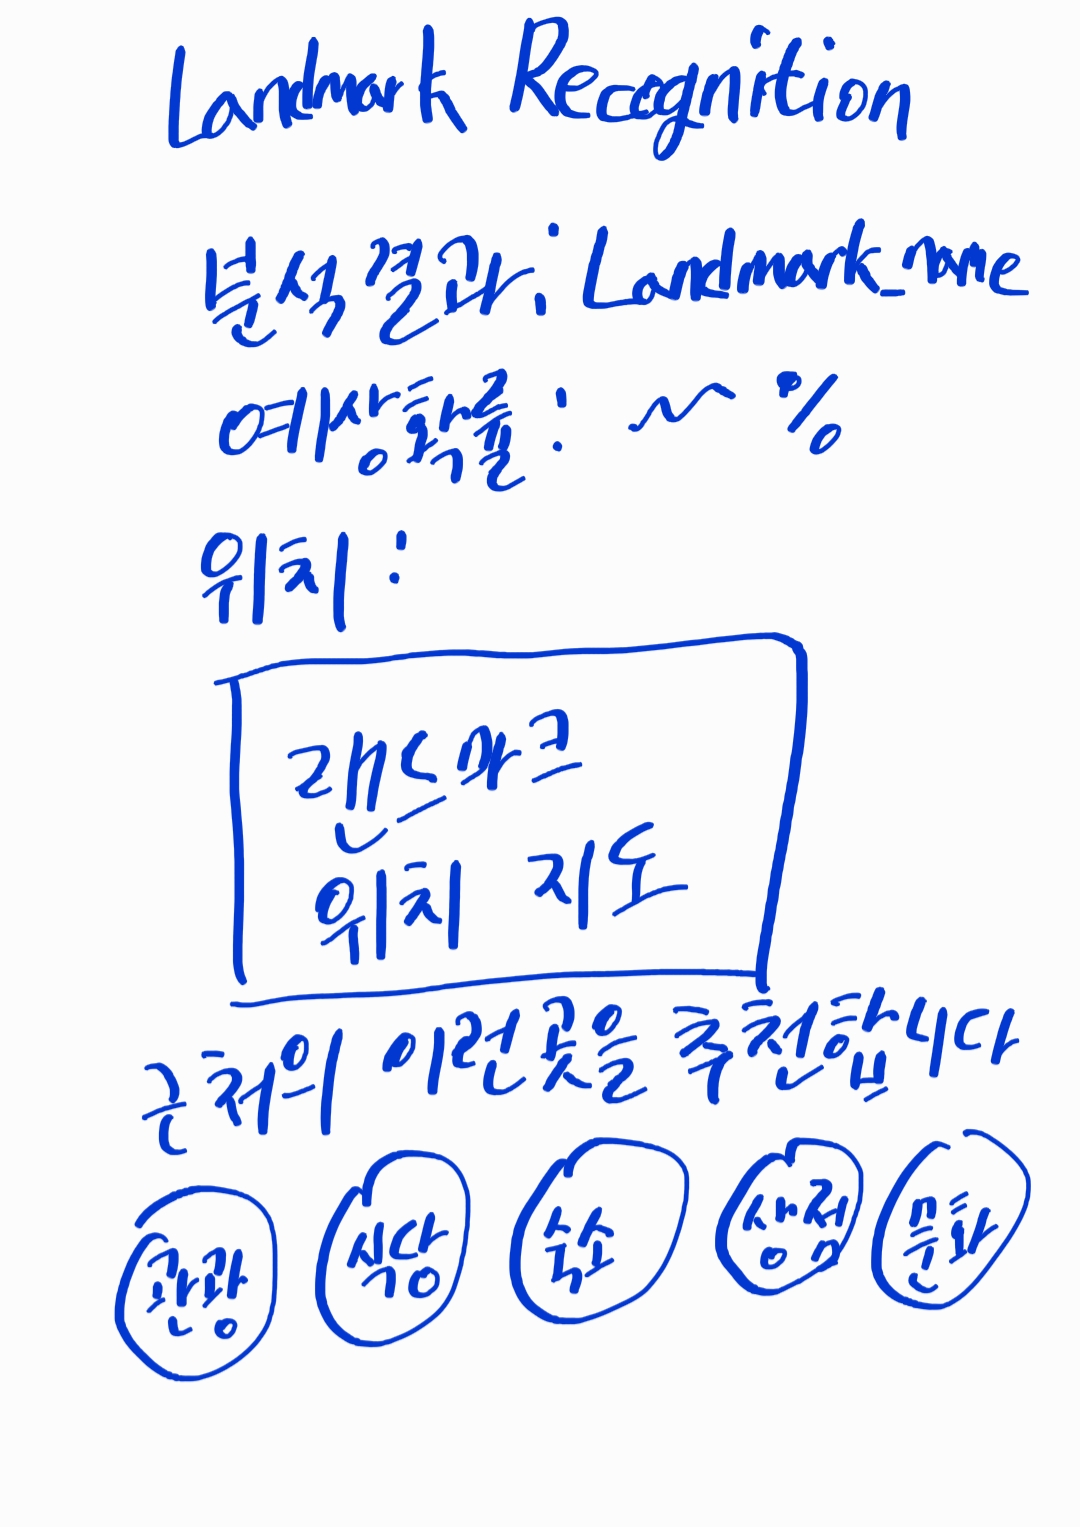 Landmark Recognition
분석결과: Landmark_name
예상확률: ~ %
위치:
랜드마크
위치 지도
근처의 이런곳을 추천합니다
관광 식당 숙소 상점 문화